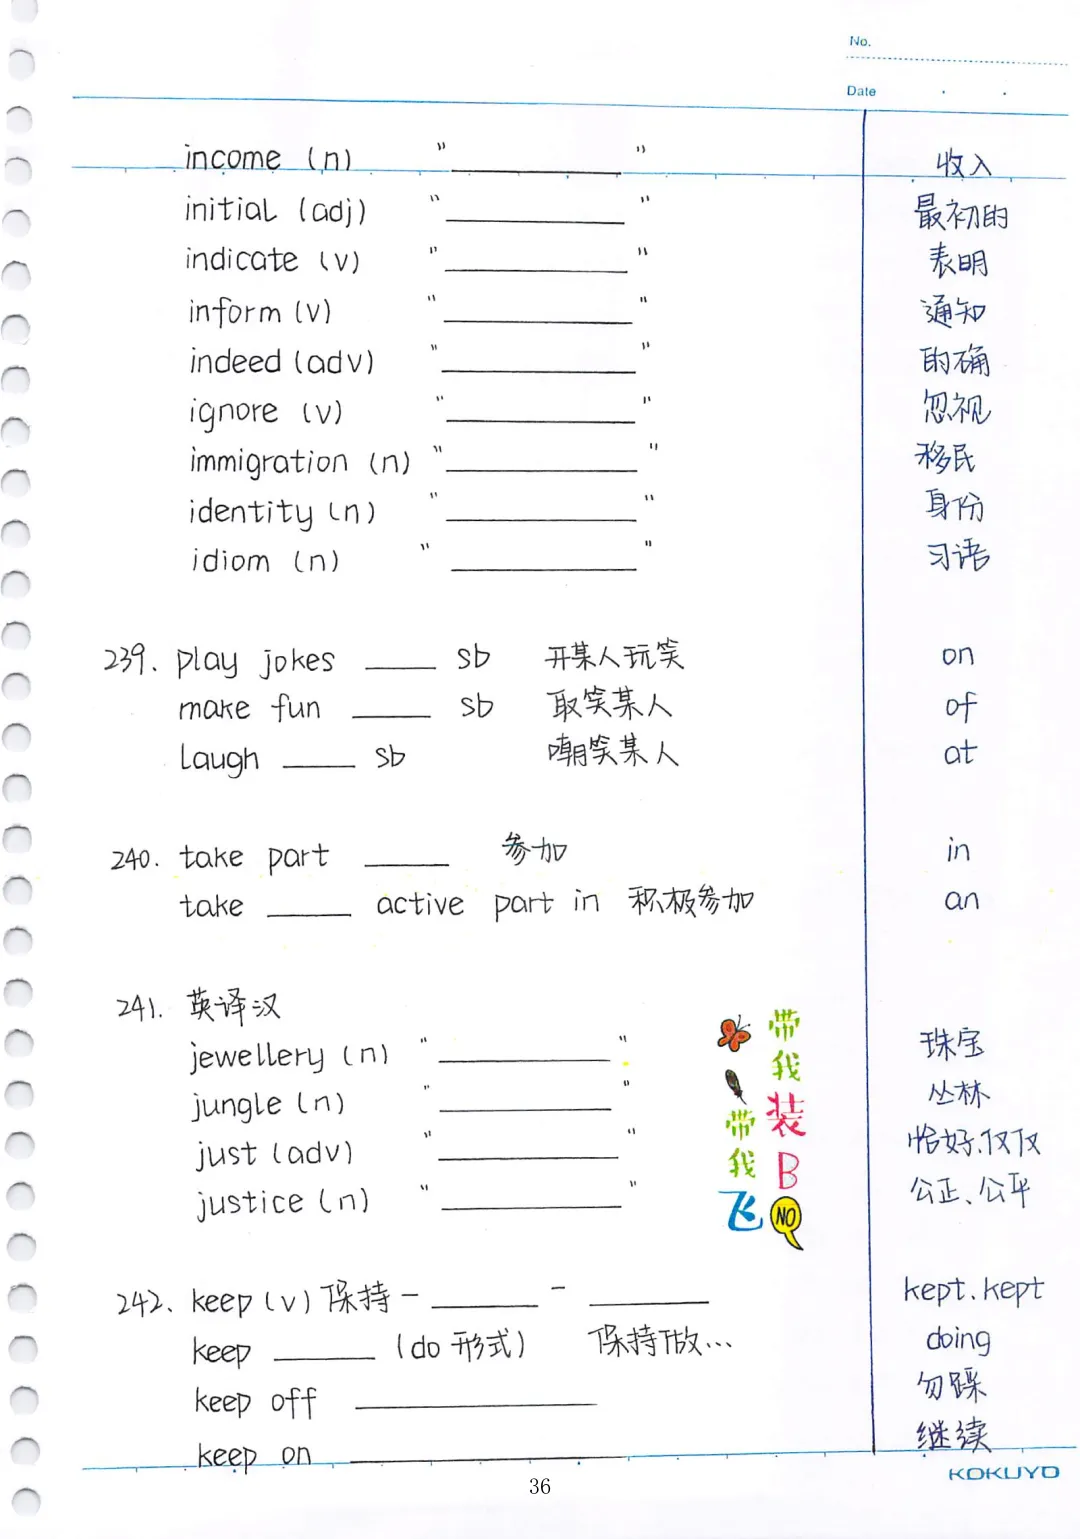 No.
Date
income (n) " ________ " 收入
initial (adj) " ________ " 最初的
indicate (v) " ________ " 表明
inform (v) " ________ " 通知
indeed (adv) " ________ " 的确
ignore (v) " ________ " 忽视
immigration (n) " ________ " 移民
identity (n) " ________ " 身份
idiom (n) " ________ " 习语
239. play jokes ____ sb 开某人玩笑 on
make fun ____ sb 取笑某人 of
laugh ____ sb 嘲笑某人 at
240. take part ____ 参加 in
take ____ active part in 积极参加 an
241. 英译汉
jewellery (n) " ________ " 珠宝
jungle (n) " ________ " 丛林
just (adv) " ________ " 恰好、仅仅
justice (n) " ________ " 公正、公平
带我装B
带我飞
NO
242. keep (v) 保持 - ____ - ____ kept. kept
keep ____ (do 形式) 保持做... doing
keep off ________ 勿踩
keep on ________ 继续
KOKUYO
36